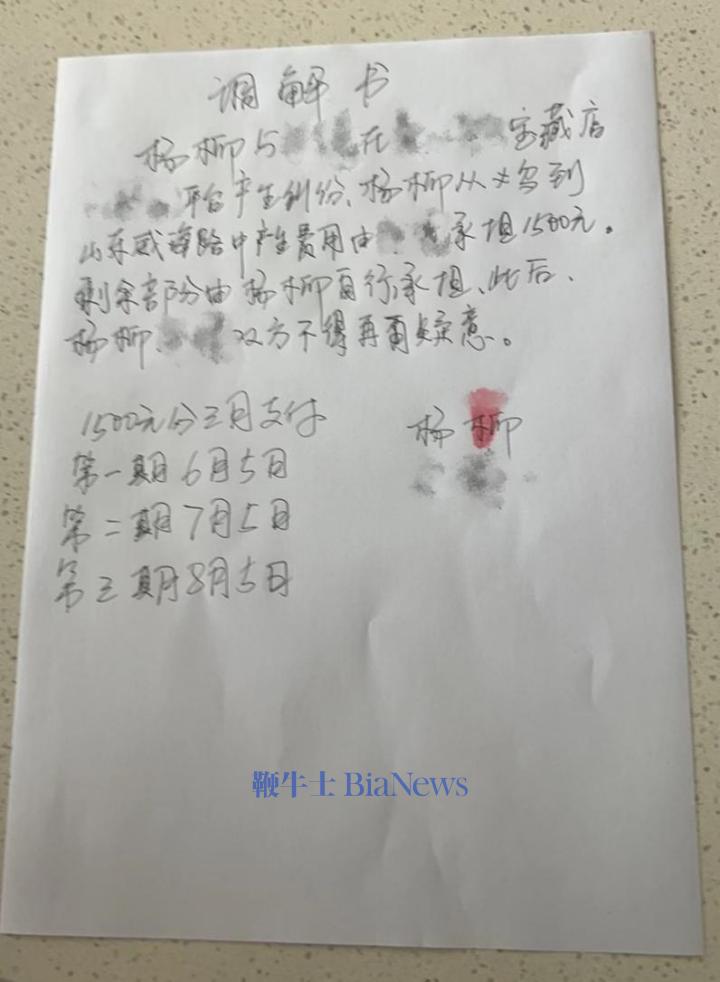 调解书
杨柳与 在 宝藏店
平台产生纠纷、杨柳从义乌到
山东威海路中产生费用由 承担1500元。
剩余部分由杨柳自行承担、此后、
杨柳、 双方不得再有疑意。
1500元分三月支付
杨柳
第一期6月5日
第二期7月5日
第三期8月5日
鞭牛士 BiaNews